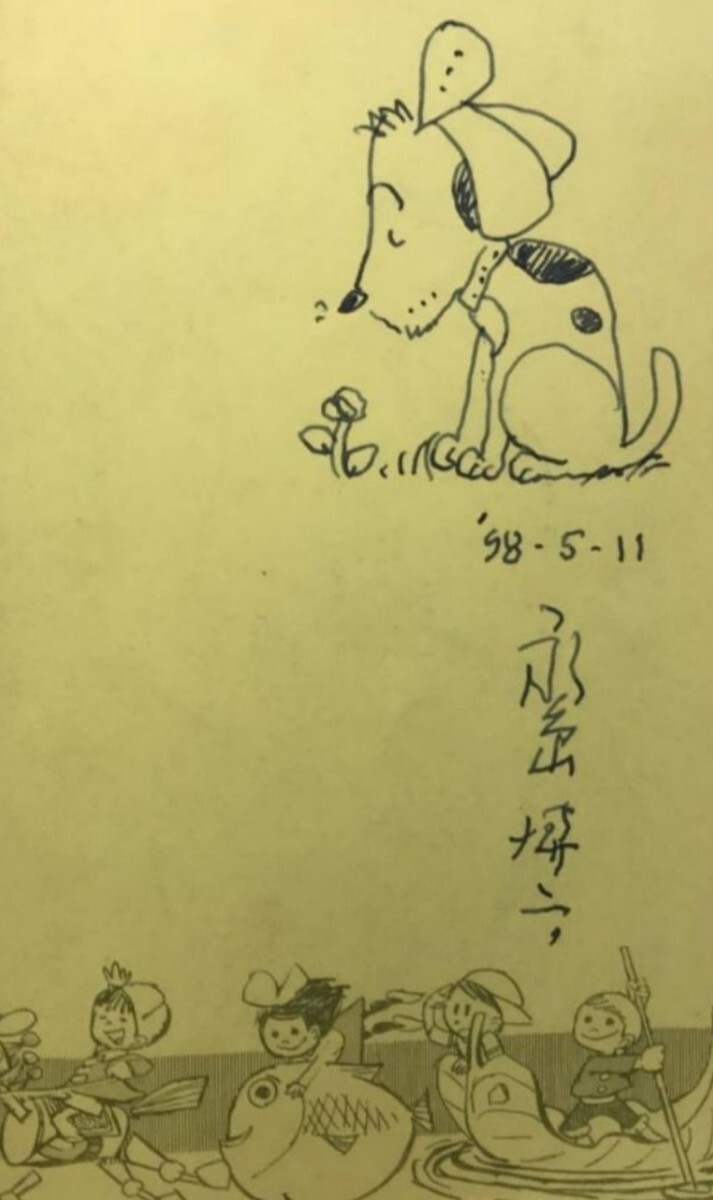 '98-5-11
永島慎二